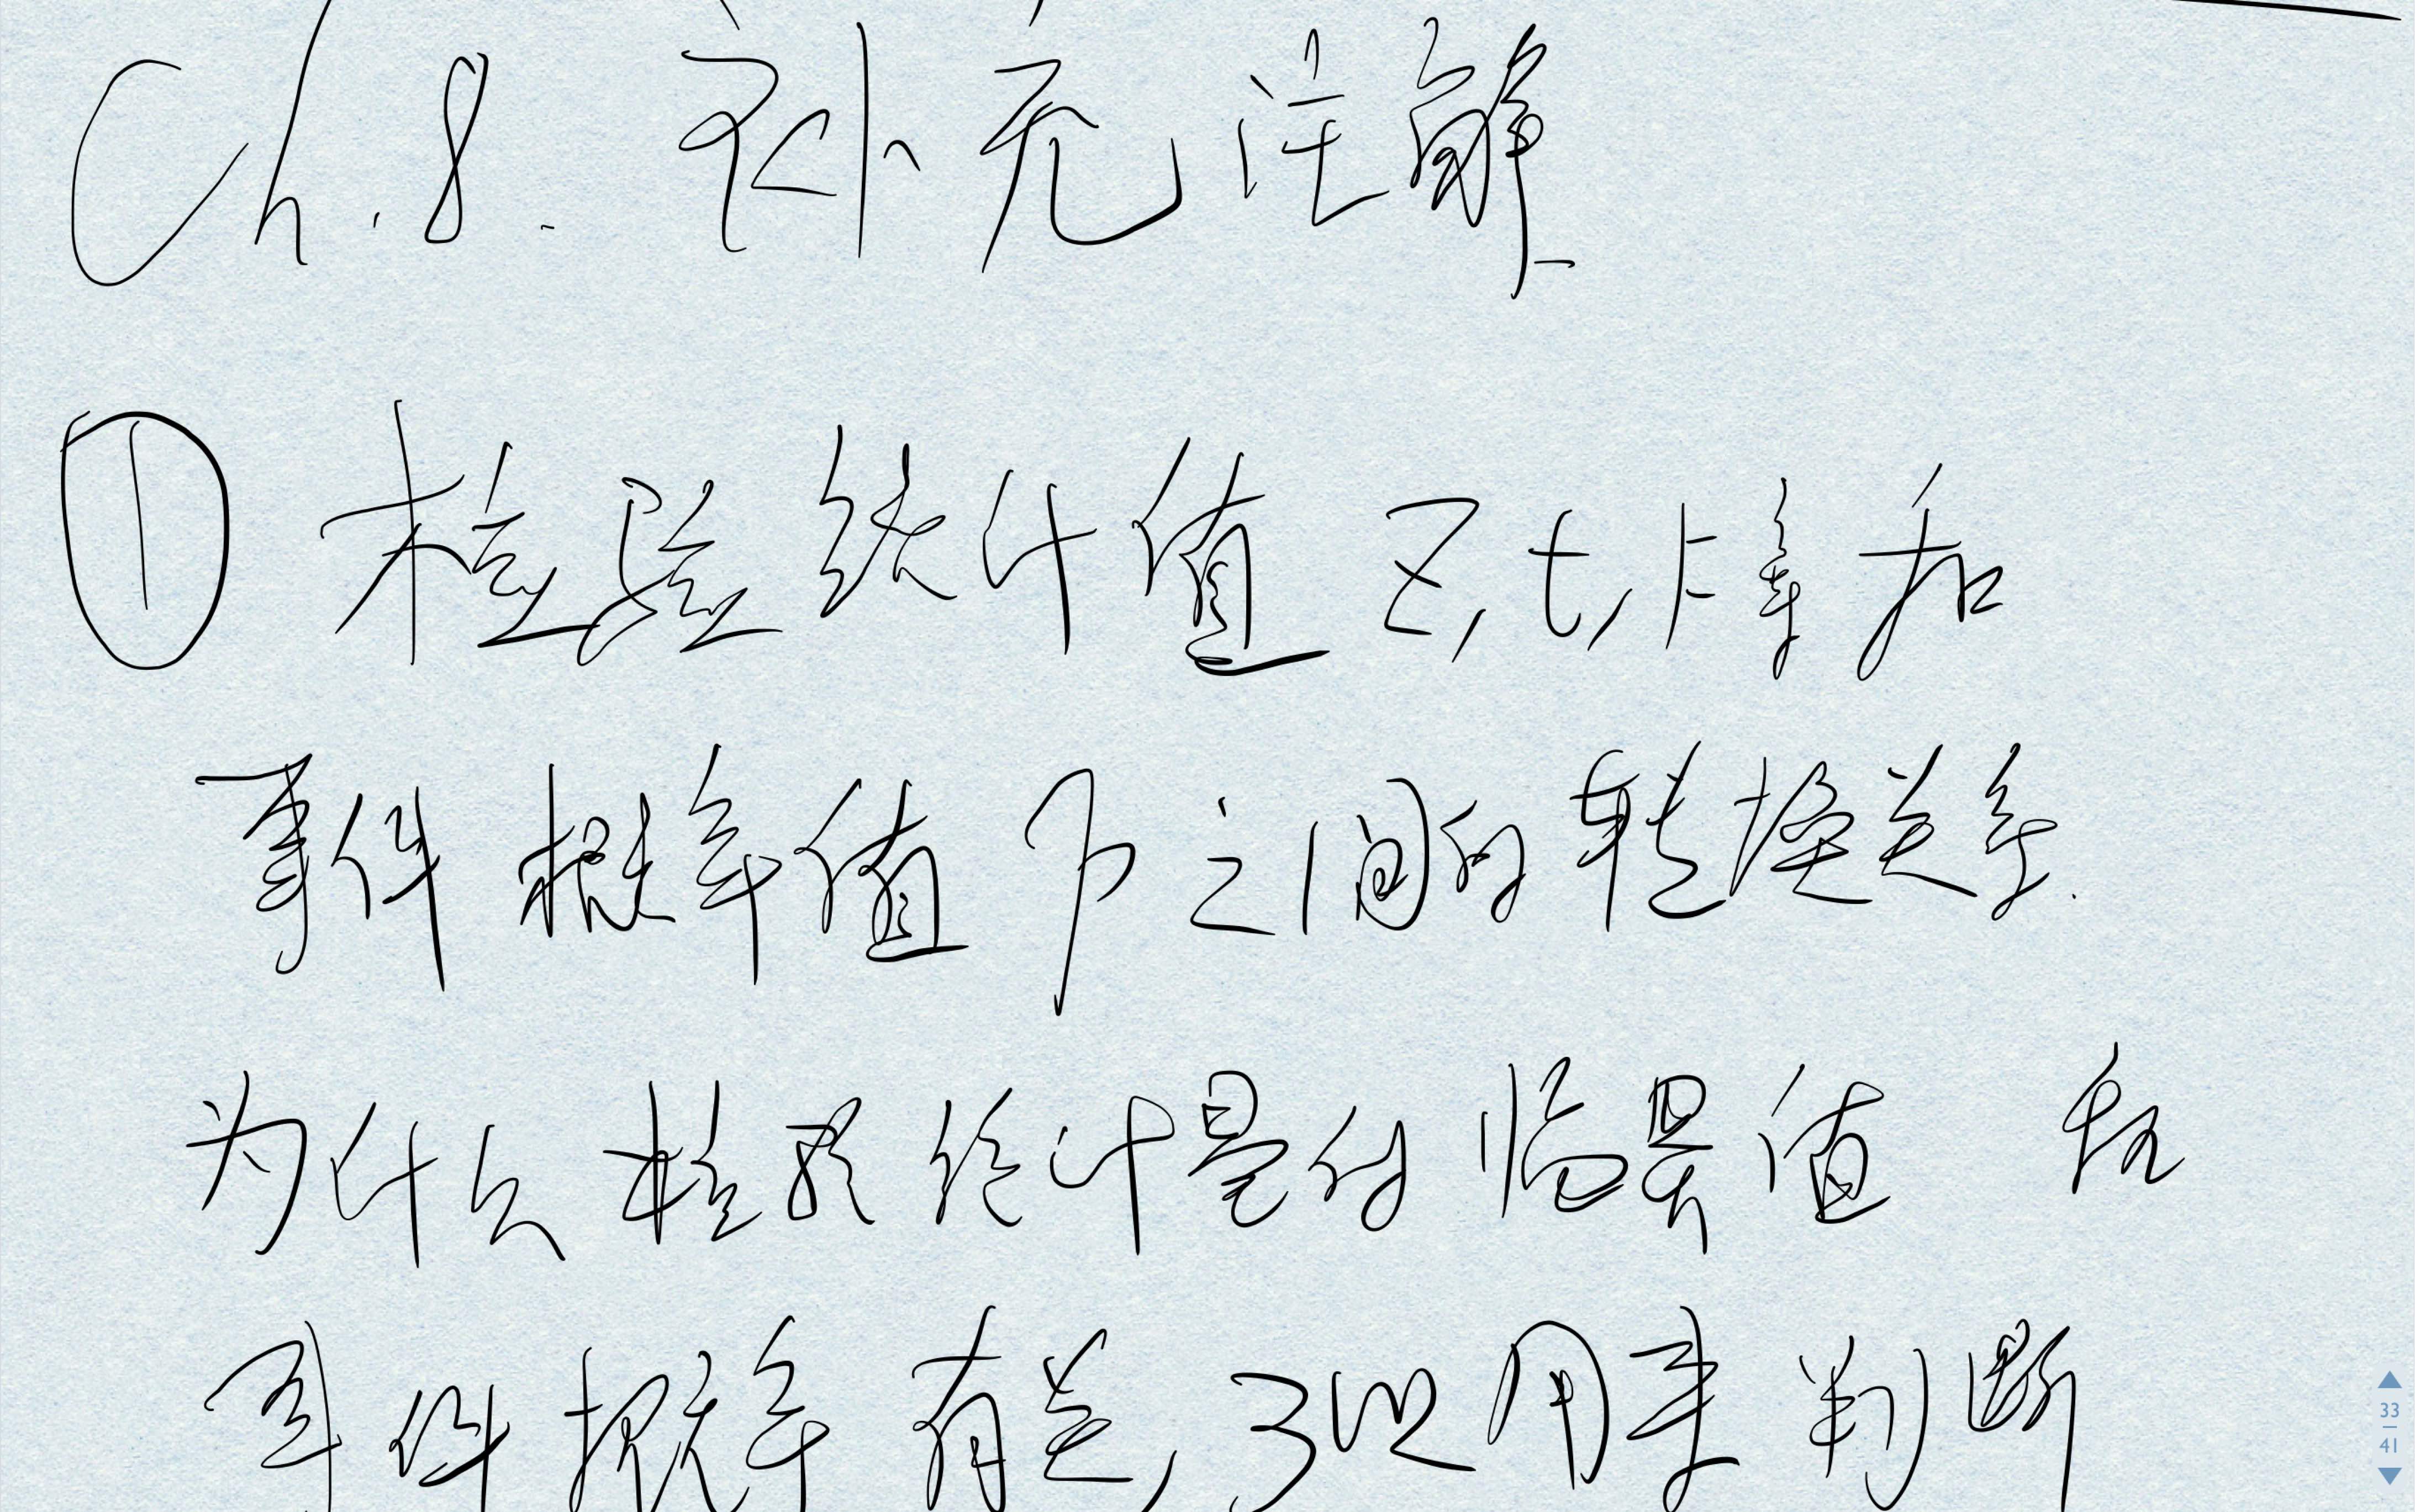 Ch.8. 补充注解
① 检验统计值 Z,t,F等和
事件概率值 P 之间的转换关系.
为什么检验统计量的临界值 和
事件概率有关,可以用来判断
33
41